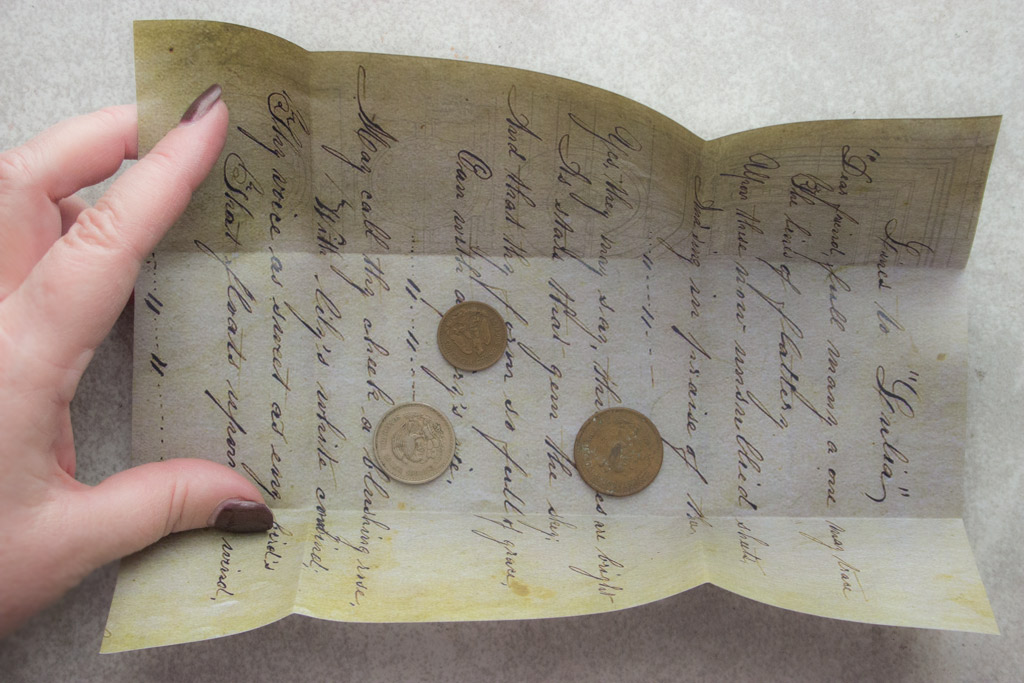 Lines to "Julia"
"Dear friend, full many a one may trace
The lines of flattery
Upon these now unsullied sheets,
in praise of thee
" " " "
Yes, they may say, thine are bright
As stars that gem the sky;
And that thy form so full of grace,
Can with a
" " " "
May call thy cheek a blushing rose,
With lily's white combined;
Thy voice as sweet as any bird's
That floats upon wind,
" "